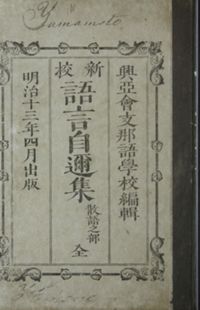 Yamamoto
興亞會支那語學校編輯
新校
語言自邇集 散語之部 全
明治十三年四月出版